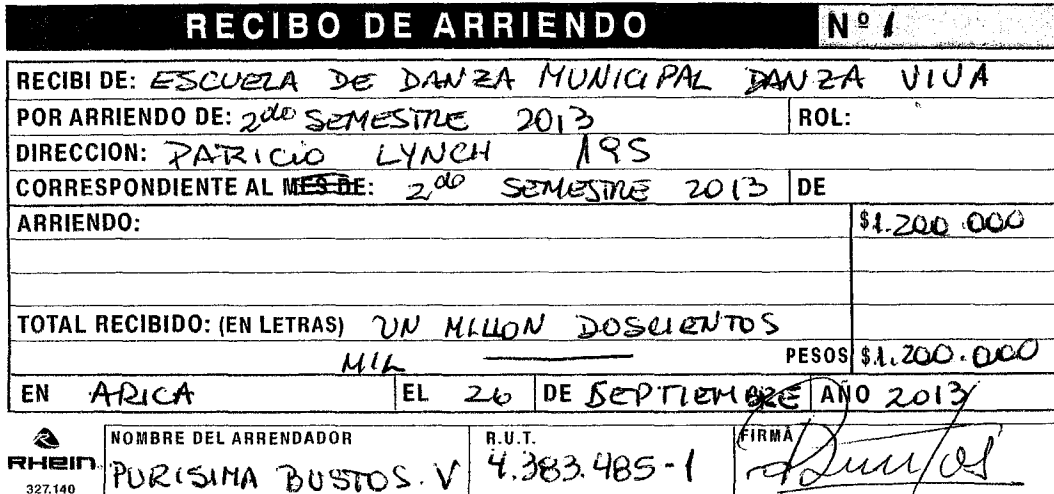 RECIBO DE ARRIENDO Nº 1
RECIBI DE: ESCUELA DE DANZA MUNICIPAL DANZA VIVA
POR ARRIENDO DE: 2do SEMESTRE 2013 ROL:
DIRECCION: PATRICIO LYNCH 195
CORRESPONDIENTE AL MES DE: 2do SEMESTRE 2013 DE
ARRIENDO: $1.200.000
TOTAL RECIBIDO: (EN LETRAS) UN MILLON DOSCIENTOS
MIL PESOS $1.200.000
EN ARICA EL 26 DE SEPTIEMBRE AÑO 2013
NOMBRE DEL ARRENDADOR R.U.T. FIRMA
RHEIN PURISIMA BUSTOS. V 4.383.485-1 Bustos
327.140